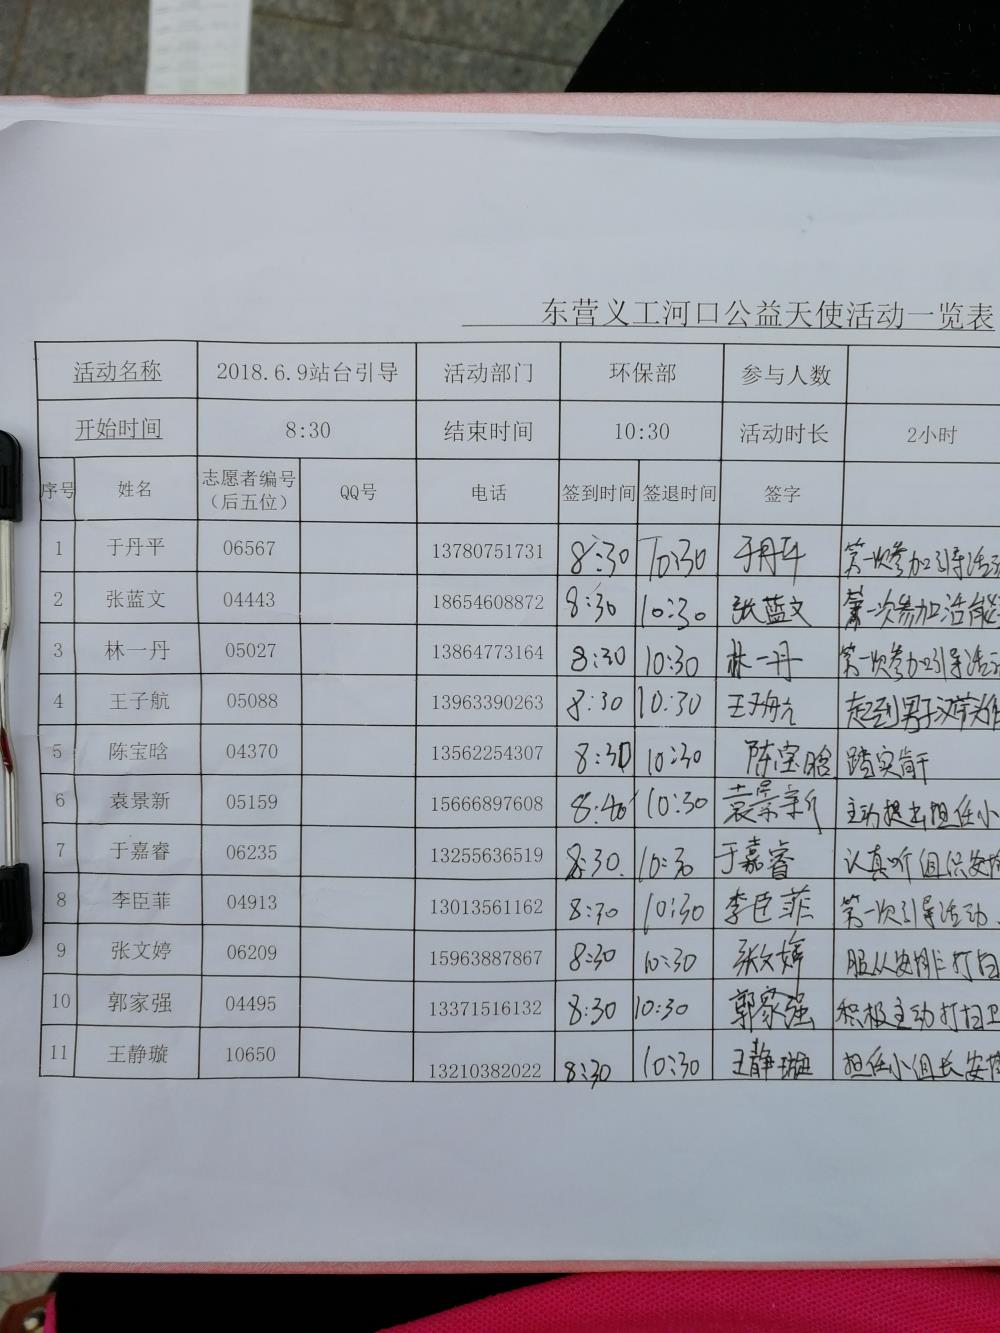 东营义工河口公益天使活动一览表
活动名称 2018.6.9站台引导 活动部门 环保部 参与人数
开始时间 8:30 结束时间 10:30 活动时长 2小时
序号 姓名 志愿者编号（后五位） QQ号 电话 签到时间 签退时间 签字
1 于丹平 06567 13780751731 8:30 10:30 于丹平 第一次参加引导活动
2 张蓝文 04443 18654608872 8:30 10:30 张蓝文 第一次参加活能
3 林一丹 05027 13864773164 8:30 10:30 林一丹 第一次参加引导活动
4 王子航 05088 13963390263 8:30 10:30 王子航 起到男子汉带头作
5 陈宝晗 04370 13562254307 8:30 10:30 陈宝晗 踏实肯干
6 袁景新 05159 15666897608 8:40 10:30 袁景新 主动提出担任小
7 于嘉睿 06235 13255636519 8:30 10:30 于嘉睿 认真听组织安排
8 李臣菲 04913 13013561162 8:30 10:30 李臣菲 第一次引导活动
9 张文婷 06209 15963887867 8:30 10:30 张文婷 服从安排打扫
10 郭家强 04495 13371516132 8:30 10:30 郭家强 积极主动打扫卫
11 王静璇 10650 13210382022 8:30 10:30 王静璇 担任小组长安排